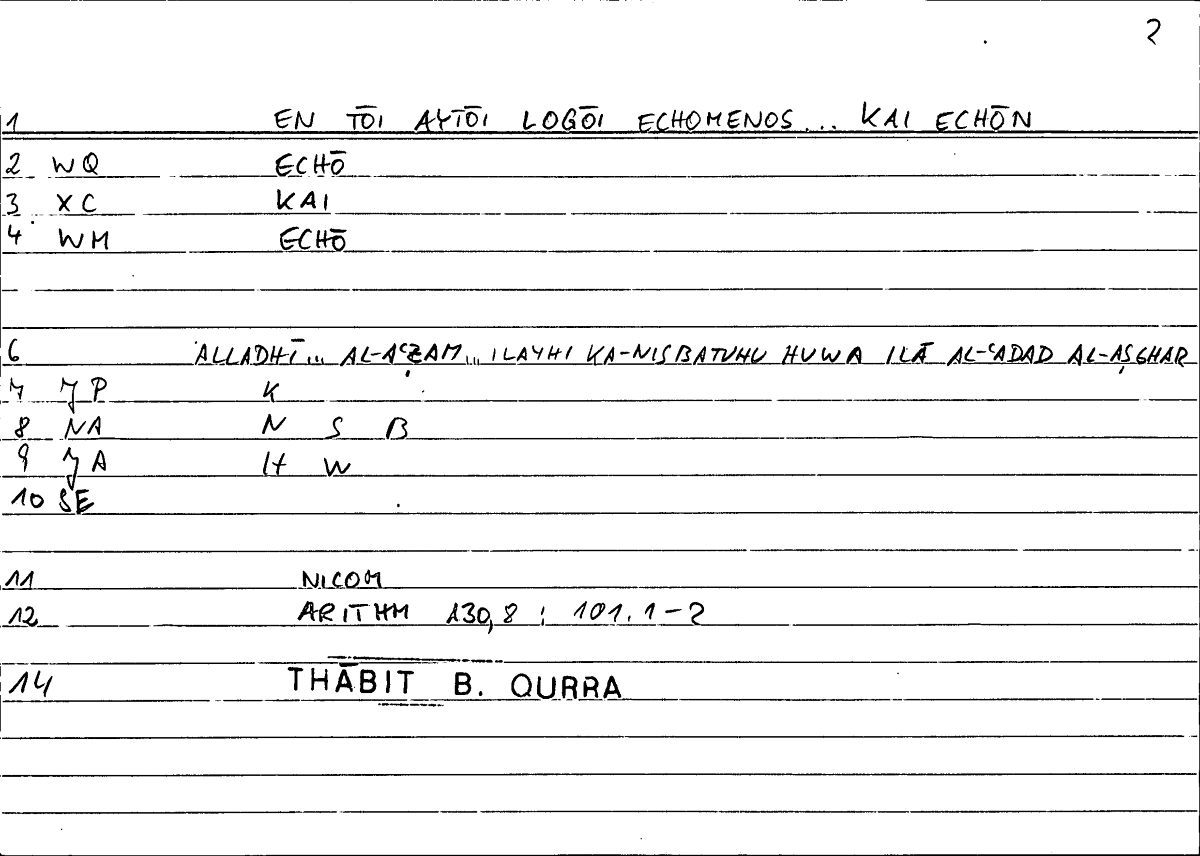 2
1 EN TŌI AYTŌI LOGŌI ECHOMENOS... KAI ECHŌN
2 WQ ECHŌ
3 XC KAI
4 WM ECHŌ
6 ALLADHĪ... AL-AʿẒAM... ILAYHI KA-NISBATUHU HUWA ILĀ AL-ʿADAD AL-AṢGHAR
7 JP K
8 NA N S B
9 JA H W
10 SE
11 NICOM
12 ARITHM 130,8 ; 101.1-2
14 THĀBIT B. QURRA